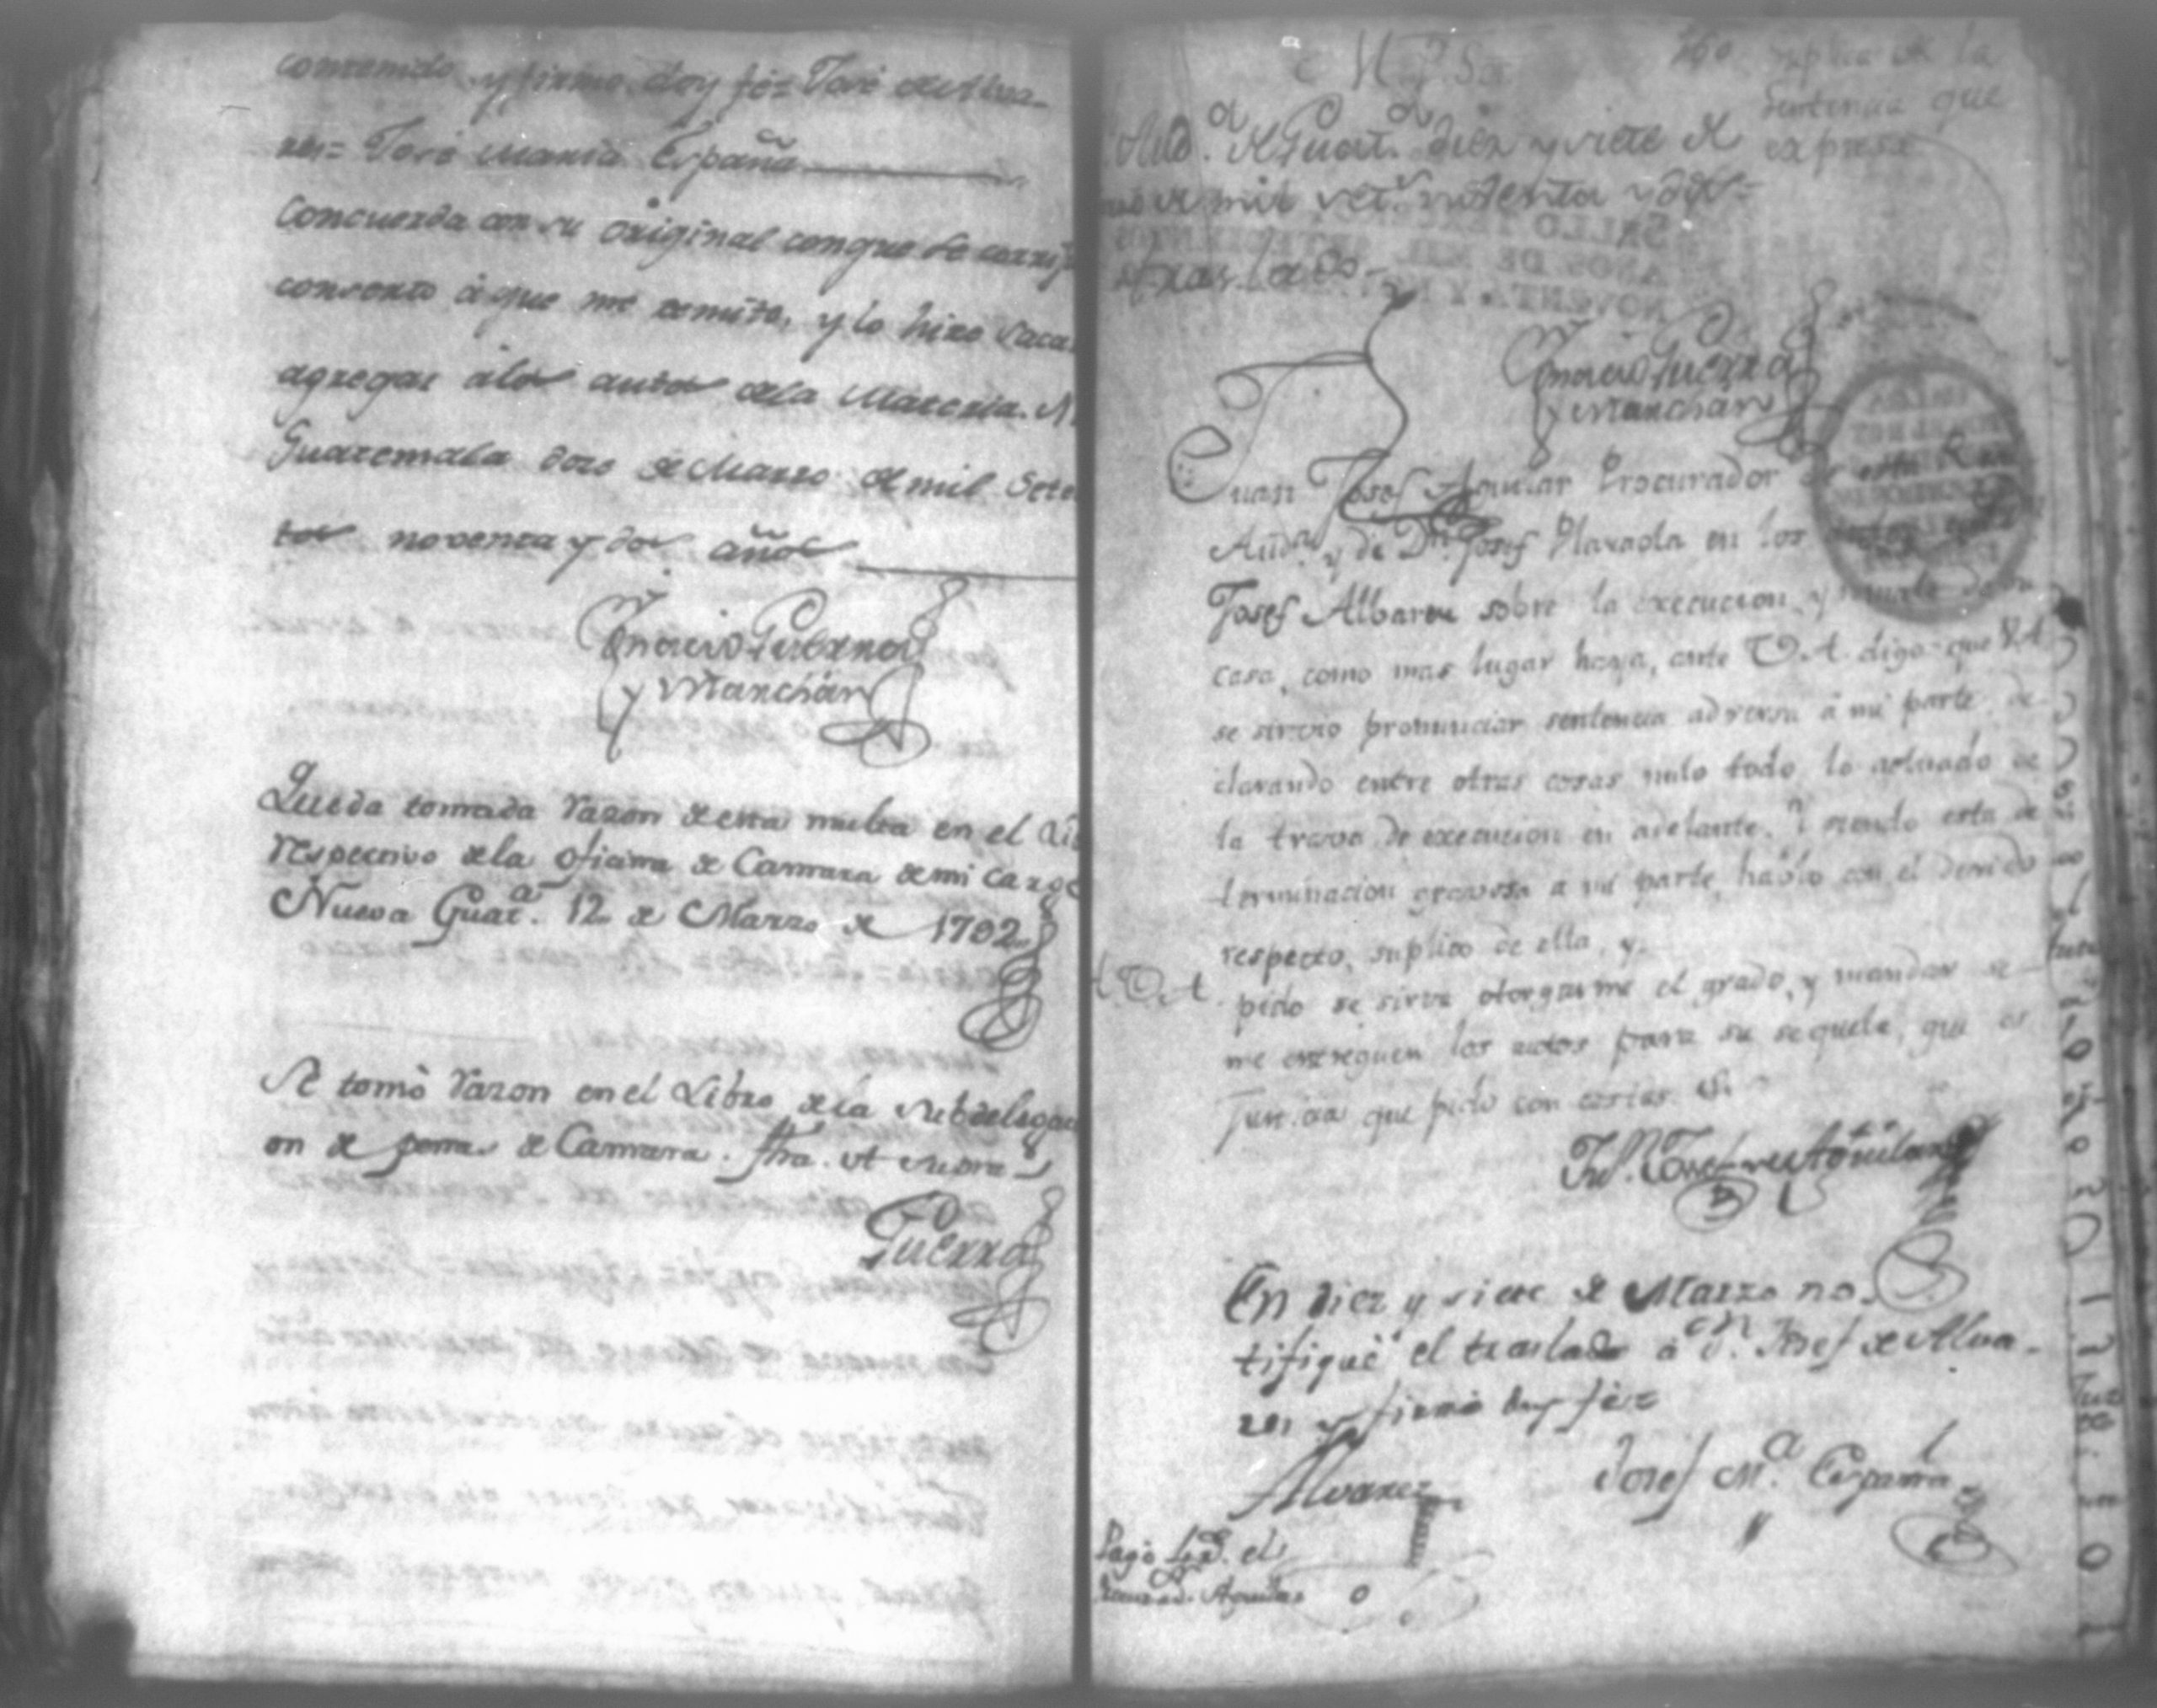 contenido, y firmo doy feé José de Alva-
rez= José Maria España
Concuerda con su original con que se corrij
conserto à que me remito, y lo hize saca
agregar álos autos de la Materia. N
Guatemala doze de Marzo de mil Sete
tos noventa y dos años
Ignacio Guerra
y Marchan
Queda tomada razon de esta multa en el Lib
respectivo de la oficina de Camara de mi cargo
Nueva Guat.a 12 de Marzo de 1792
Se tomò razon en el Libro de la subdelegaci
on de penas de Camara. fha. ut supra
Guerra
M. P. S.
suplica de la
Sentencia que
expresa
R.l Aud.a de Guat.a diez y siete de
mil set.s noventa y dos
traslado
Ignacio Guerra
y Marchan
Juan Josef Aguilar Procurador de esta R.l
Aud.a y de D.n Josef Plazaola en los
Josef Albarez sobre la execucion, y
casa, como mas lugar haya, ante V.A. digo: que V.A.
se sirvio pronunciar sentencia adversa á mi parte, de-
clarando entre otras cosas nulo todo lo actuado de
la trava de execucion en adelante. Y siendo esta de
terminacion gravosa a mi parte, hablo con el devido
respecto, suplico de ella, y
A. V. A.
pido se sirva otorgarme el grado, y mandar se
me entreguen los autos para su sequela, que es
Justicia que pido con costas &.
Ju.n Josef de Aguilar
En diez y siete de Marzo no-
tifiqué el traslado á D.n Josef de Alva-
rez, y firmó doy feé
Alvarez
Josef M.a España
Pagò el
Procurad.r Aguilar